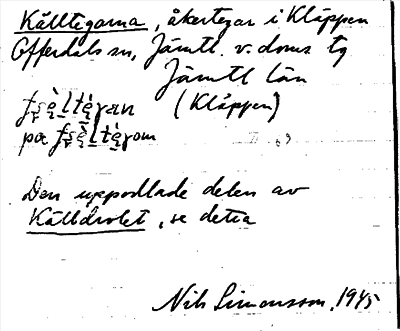 Källtegarna, åkertegar i Kläppen
Offerdals sn, Jämtl. v. doms tg
Jämtl län
(Kläppen)
på
Den uppodlade delen av
Källdrolet, se detta
Nils Simonsson, 1945